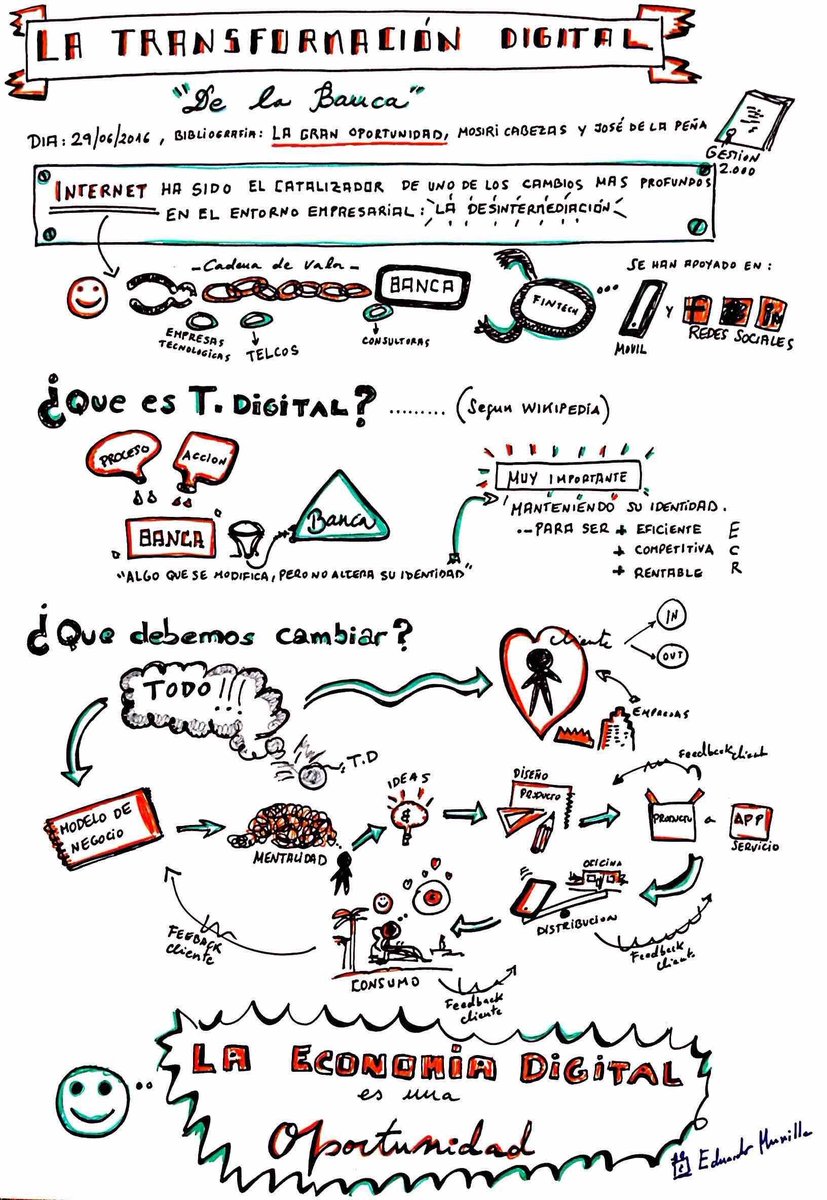 LA TRANSFORMACIÓN DIGITAL
"De la Banca"
DIA: 29/06/2016, BIBLIOGRAFIA: LA GRAN OPORTUNIDAD, MOSIRI CABEZAS Y JOSÉ DE LA PEÑA
GESTIÓN
2.000
INTERNET HA SIDO EL CATALIZADOR DE UNO DE LOS CAMBIOS MAS PROFUNDOS
EN EL ENTORNO EMPRESARIAL: LA DESINTERMEDIACIÓN
- Cadena de Valor -
BANCA
EMPRESAS
TECNOLOGICAS
TELCOS
CONSULTORAS
FINTECH
...
SE HAN APOYADO EN:
MOVIL
Y
REDES SOCIALES
¿QUE ES T. DIGITAL? ......... (Segun WIKIPEDIA)
PROCESO
ACCION
BANCA
Banca
"ALGO QUE SE MODIFICA, PERO NO ALTERA SU IDENTIDAD"
MUY IMPORTANTE
MANTENIENDO SU IDENTIDAD.
...PARA SER + EFICIENTE E
+ COMPETITIVA C
+ RENTABLE R
¿Que debemos cambiar?
TODO!!!
T.D
Cliente
IN
OUT
EMPRESAS
MODELO DE
NEGOCIO
MENTALIDAD
IDEAS
DISEÑO
PRODUCTO
Feedback client
PRODUCTO
APP
SERVICIO
OFICINA
DISTRIBUCION
Feedback
Client.
CONSUMO
Feedback
cliente
FEEBACK
Cliente
LA ECONOMÍA DIGITAL
es una
Oportunidad
Eduardo